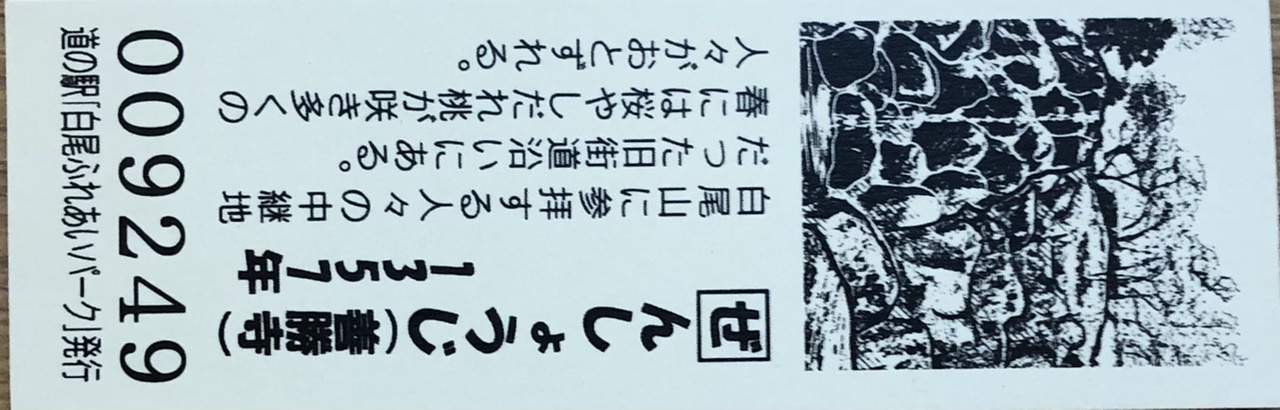 ぜんしょうじ(善勝寺)
1357年
白尾山に参拝する人々の中継地
だった旧街道沿いにある。
春には桜やしだれ桃が咲き多くの
人々がおとずれる。
009249
道の駅「白尾ふれあいパーク」発行